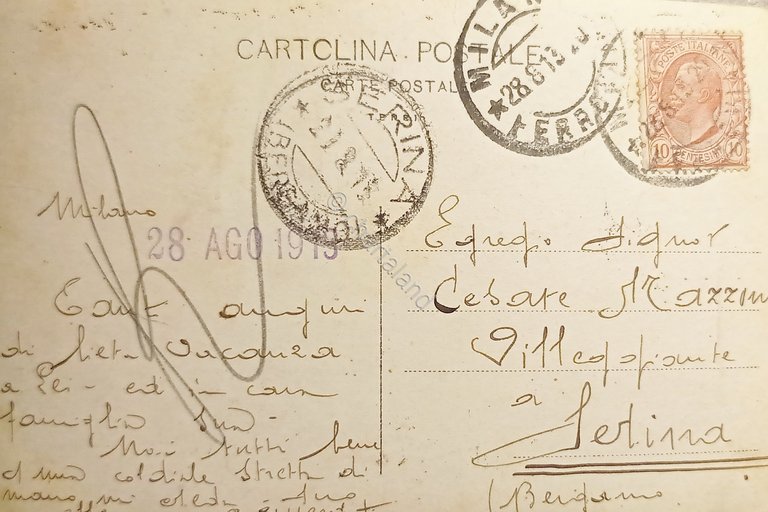 CARTOLINA POSTALE
CARTE POSTALE
MILANO
28.8.13
FERROVIA
SERINA
29.8.13
(BERGAMO)
POSTE ITALIANE
10 CENTESIMI 10
© Cartaland
Milano
28 AGO 1913
Tanti auguri
di lieta vacanza
a Lei - ed in cara
famiglia Sua -
Noi tutti bene
di mano mi creda suo
Egregio Signor
Cesare Mazzin
Villeggiante
a Serina
(Bergamo